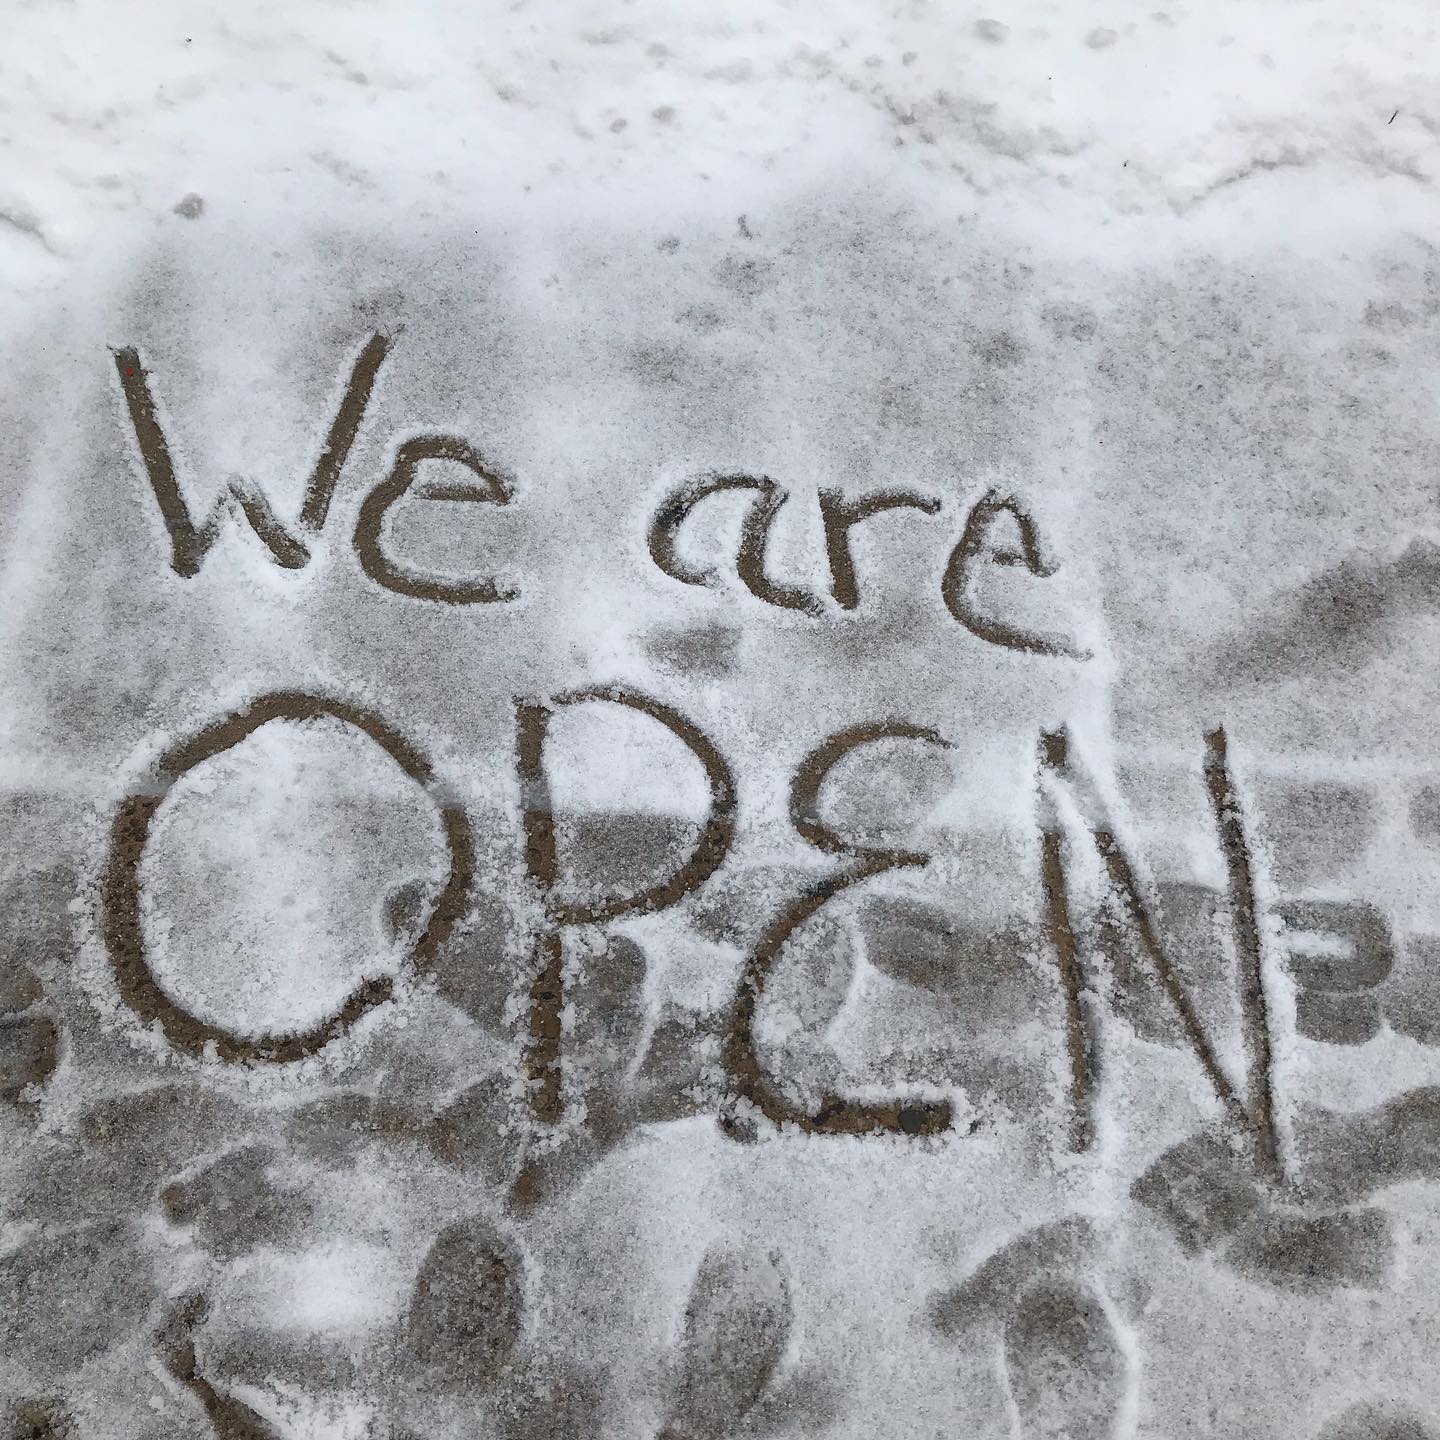 We are
OPEN